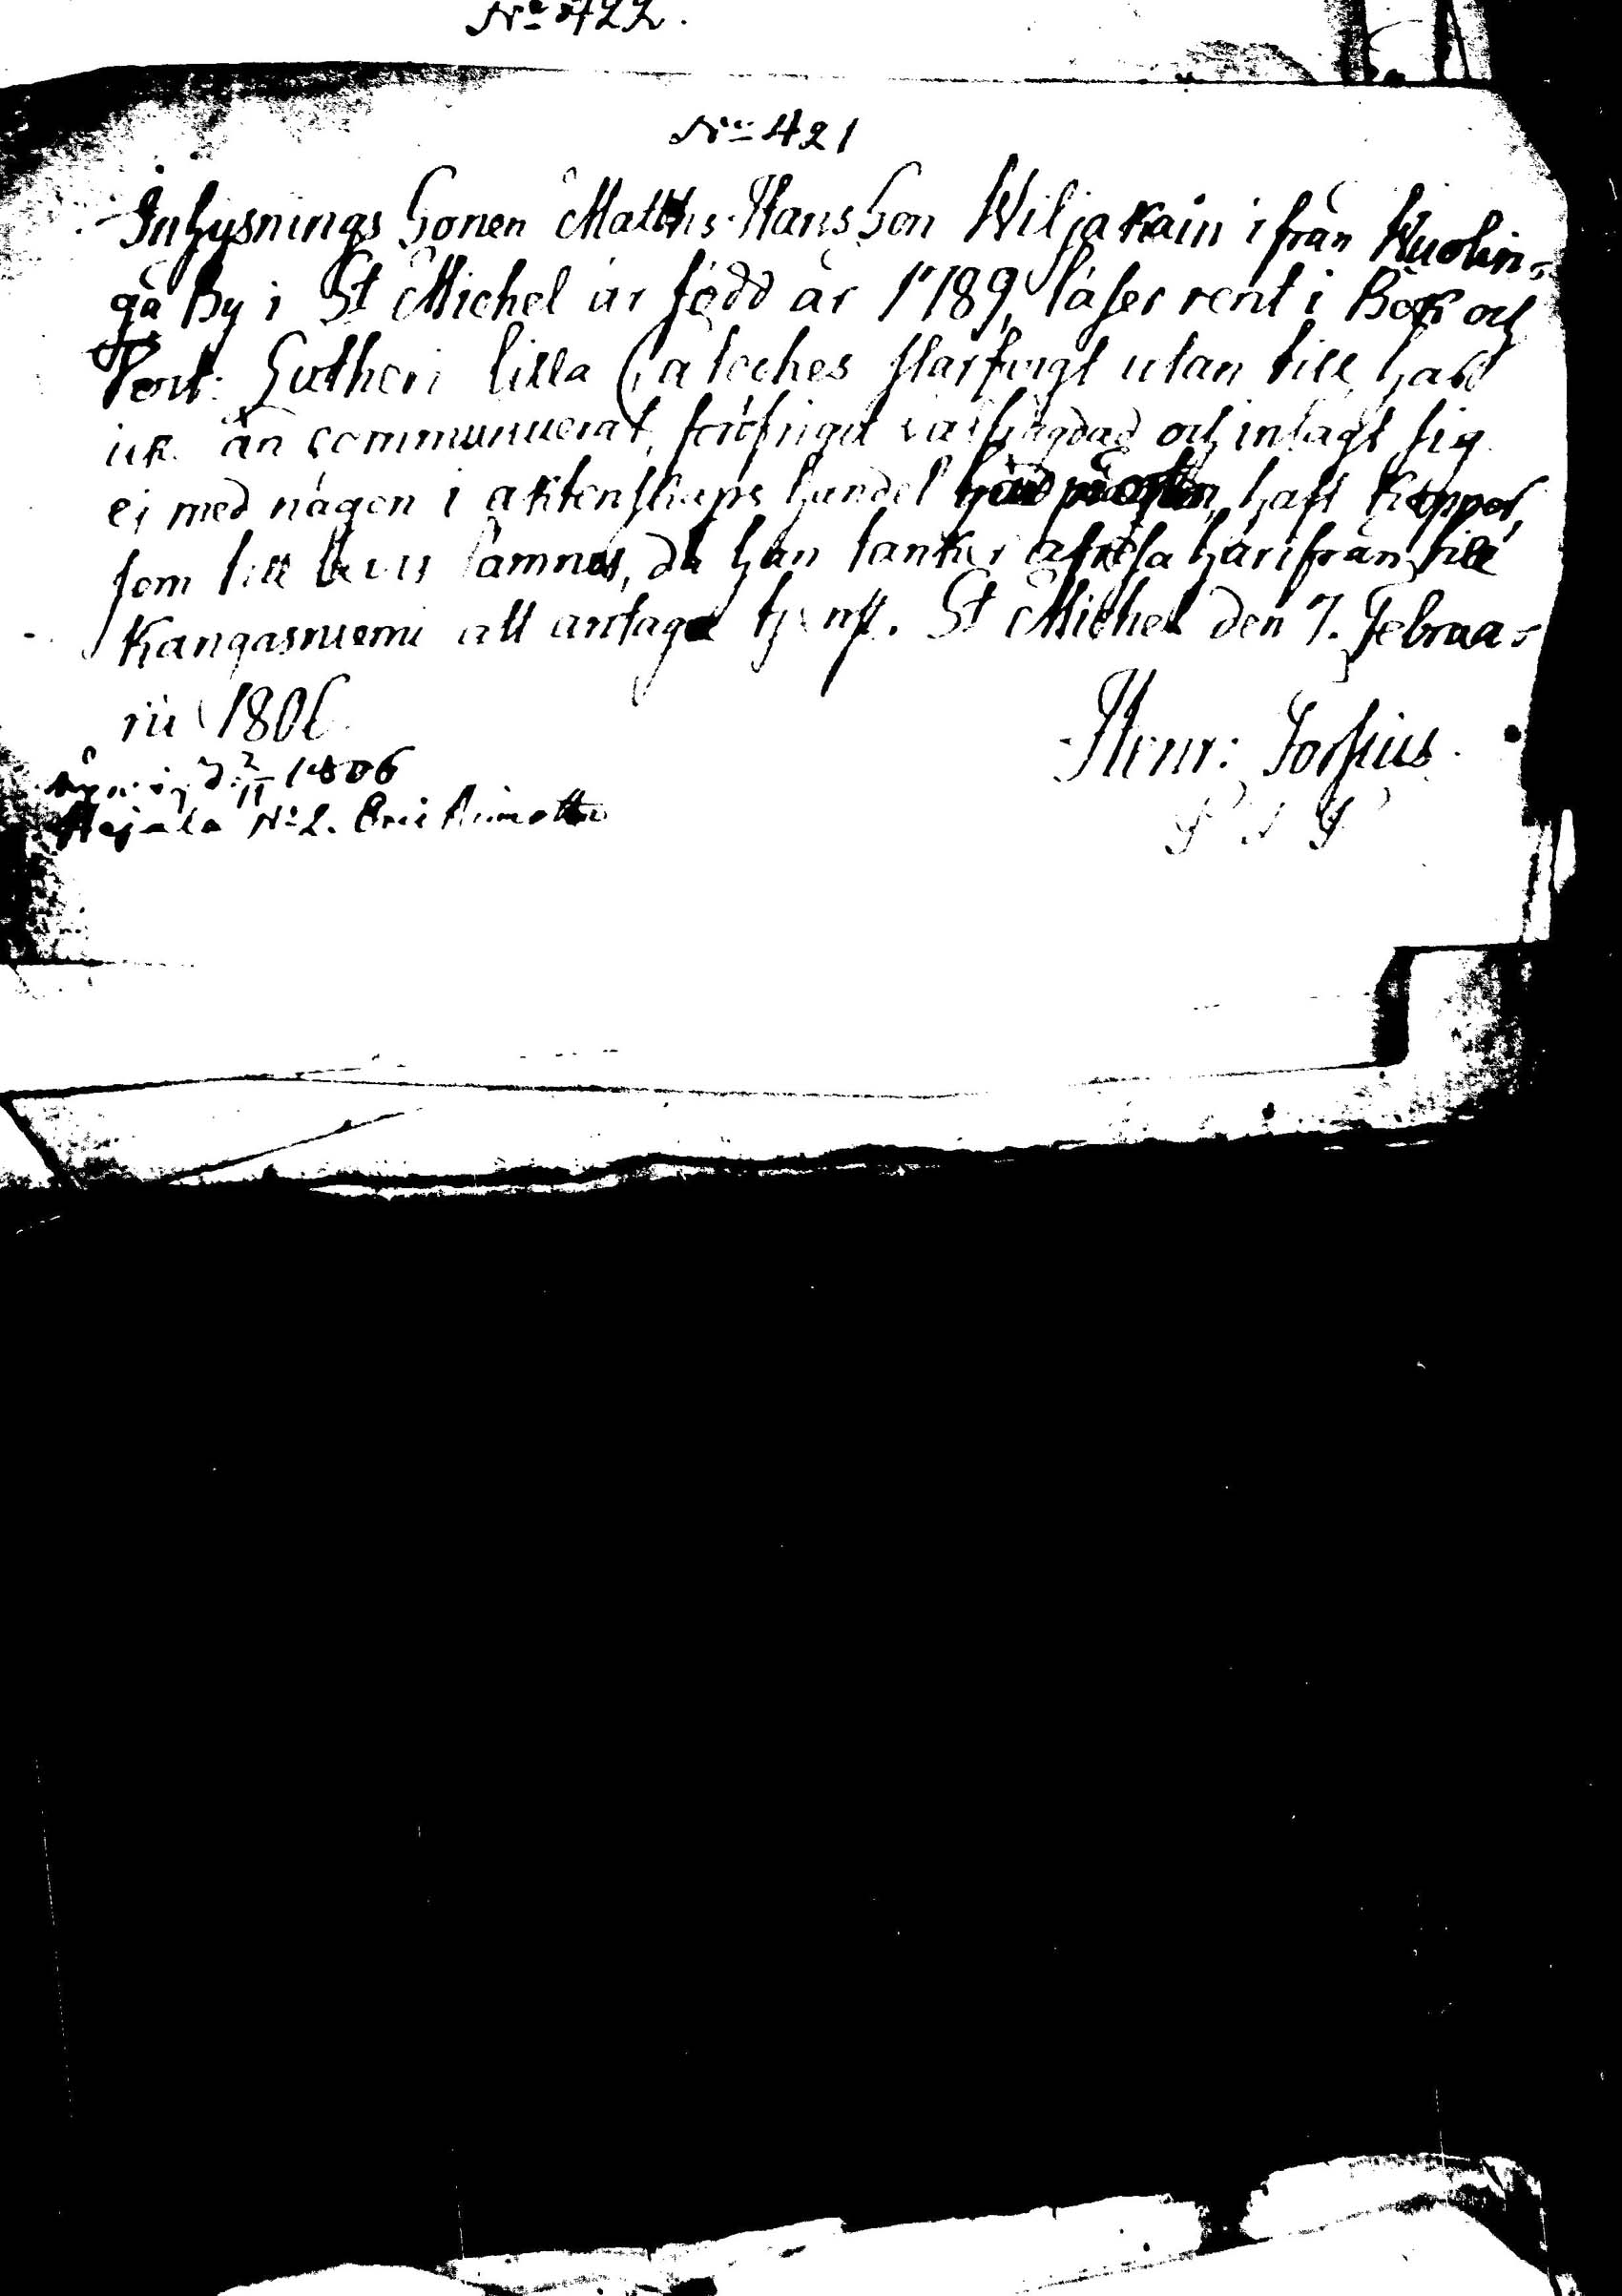 No 422.
No 421
Inhysnings Sonen Matths Hans Son Wiljakain ifrån Kuolin-
gå By i St Michel är född år 1789, läser rent i Bok och
Lutheri lilla Cateches utan till, har
ick än communicerat, och inlagt sig
ej med någon i äktenskaps handel haft Koppor,
som till bevis lämnas, då han tänker afresa härifrån till
Kangasniemi att antaga tjenst. St Michel den 7. Februa-
rii 1806
Henr: Forsius
d. 2/11 1806
No 2. Eric